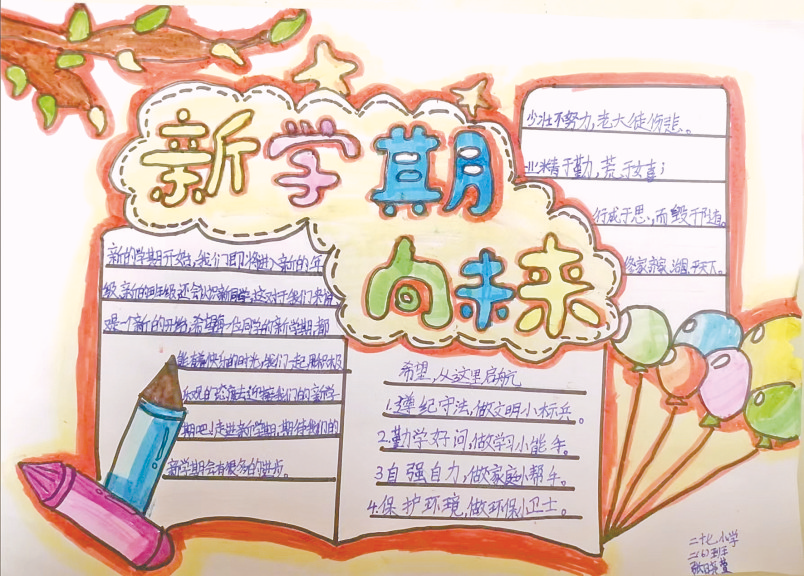 新学期
向未来
少壮不努力,老大徒伤悲。
业精于勤,荒于嬉;
行成于思,而毁于随。
修家齐家治国平天下。
新的学期开始,我们即将进入新的年
级,新的班级还会认识新同学,这对于我们来说
是一个新的开始,希望每一位同学的新学期都
能有着快乐的时光,我们一起用积极
乐观的态度去迎接我们的新学
期吧!走进新学期,期待我们的
新学期会有很多的进步。
希望,从这里启航
1.遵纪守法,做文明小标兵。
2.勤学好问,做学习小能手。
3自强自力,做家庭小帮手。
4.保护环境,做环保小卫士。
二十七小学
二(6)班